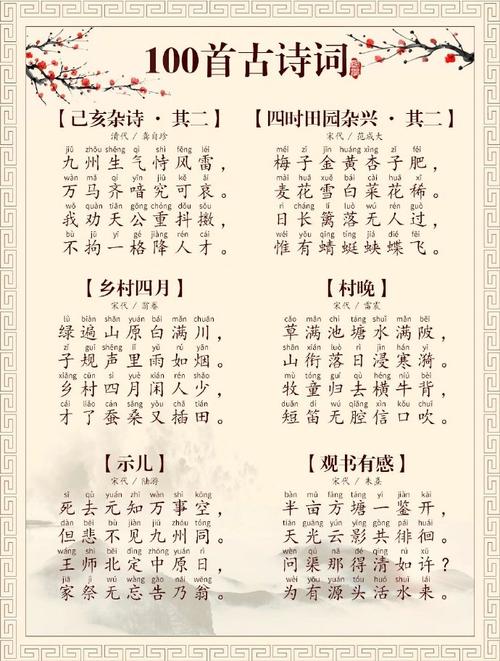 100首古诗词
【己亥杂诗 · 其二】
清代 / 龚自珍
jiǔ zhōu shēng qì shì fēng léi
九州生气恃风雷，
wàn mǎ qí yīn jiū kě āi
万马齐喑究可哀。
wǒ quàn tiān gōng chóng dǒu sǒu
我劝天公重抖擞，
bù jū yì gé jiàng rén cái
不拘一格降人才。
【四时田园杂兴 · 其二】
宋代 / 范成大
méi zǐ jīn huáng xìng zǐ féi
梅子金黄杏子肥，
mài huā xuě bái cài huā xī
麦花雪白菜花稀。
rì cháng lí luò wú rén guò
日长篱落无人过，
wéi yǒu qīng tíng jiá dié fēi
惟有蜻蜓蛱蝶飞。
【乡村四月】
宋代 / 翁卷
lǜ biàn shān yuán bái mǎn chuān
绿遍山原白满川，
zǐ guī shēng lǐ yǔ rú yān
子规声里雨如烟。
xiāng cūn sì yuè xián rén shǎo
乡村四月闲人少，
cái liǎo cán sāng yòu chā tián
才了蚕桑又插田。
【村晚】
宋代 / 雷震
cǎo mǎn chí táng shuǐ mǎn bēi
草满池塘水满陂，
shān xián luò rì jìn hán yī
山衔落日浸寒漪。
mù tóng guī qù héng niú bèi
牧童归去横牛背，
duǎn dí wú qiāng xìn kǒu chuī
短笛无腔信口吹。
【示儿】
宋代 / 陆游
sǐ qù yuán zhī wàn shì kōng
死去元知万事空，
dàn bēi bú jiàn jiǔ zhōu tóng
但悲不见九州同。
wáng shī běi dìng zhōng yuán rì
王师北定中原日，
jiā jì wú wàng gào nǎi wēng
家祭无忘告乃翁。
【观书有感】
宋代 / 朱熹
bàn mǔ fāng táng yí jiàn kāi
半亩方塘一鉴开，
tiān guāng yún yǐng gòng pái huái
天光云影共徘徊。
wèn qú nǎ dé qīng rú xǔ
问渠那得清如许？
wèi yǒu yuán tóu huó shuǐ lái
为有源头活水来。